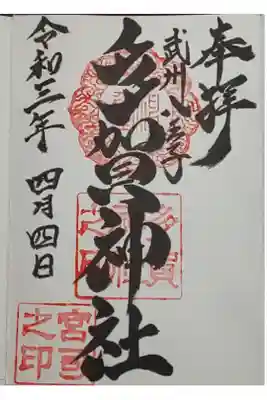 奉拝
武州八王子
多賀神社
令和三年 四月四日
多賀
之社
宮司
之印